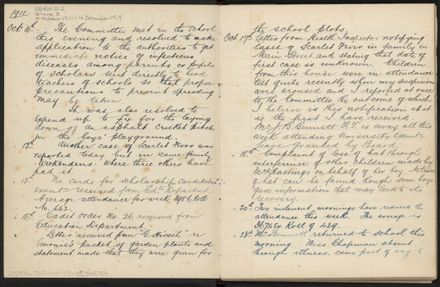 1911
Oct 10th The Committee met in the school
this evening and resolved to make
application to the authorities to get
immediate notice of infectious
diseases among parents or pupils
of scholars sent directly to head
teachers of schools so that proper
precautions to prevent spreading
may be taken.
It was also resolved to
expend up to for the laying
down of an asphalt cricket pitch
in the boys' playground.
12th Another case of Scarlet Fever was
reported today but in same family,
three others have
had it
13th The cards for scholarship candidates'
exam received from Edn Department
Average attendance for week Roll
No. 442.
15th Cadet Order No. 26 received from
Education Department.
Letter received from
packet of garden plants and
statement made that they were given for
the school plots.
Oct 17th Letter from Health Inspector notifying
cases of Scarlet Fever in family in
Main Street and stating that date of
first case is unknown. Children
from this house were in attendance
till quite recently when my suspicions
were aroused and I reported at once
to the Committee the outcome of which
I believe is the notification that
is the first I have received.
Mr J. B. Bennett P.T. is away all this
week attending University exam
leave granted by Board.
18th Complaint of loss of hat through
interference of other children made by
Mrs Hastings on behalf of her boy
that can be found though some boys
gave information that may lead to its
recovery.
20th Two inclement mornings have reduced the
attendance this week. The average is
Roll of 429.
23rd Mr Bennett returned to school this
morning. Miss Chapman absent
through illness, came part of way to